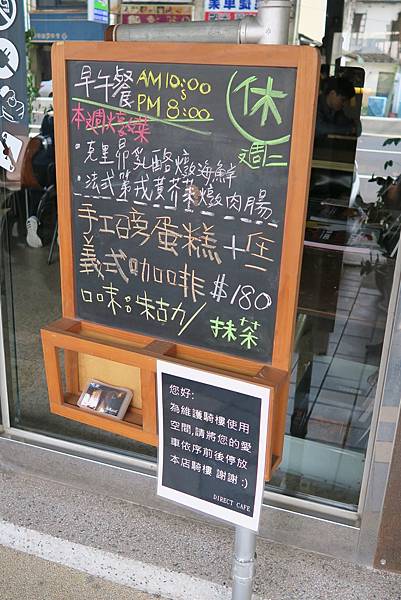 早午餐 AM 10:00
PM 8:00
休
週二
本週燉菜
・克里昂乳酪燉海鮮
・法式第戎黃芥茉燉肉腸
手工磅蛋糕+任
義式咖啡 $180
口味:朱古力/抹茶
您好:
為維護騎樓使用
空間,請將您的愛
車依序前後停放
本店騎樓 謝謝:)
DIRECT CAFE